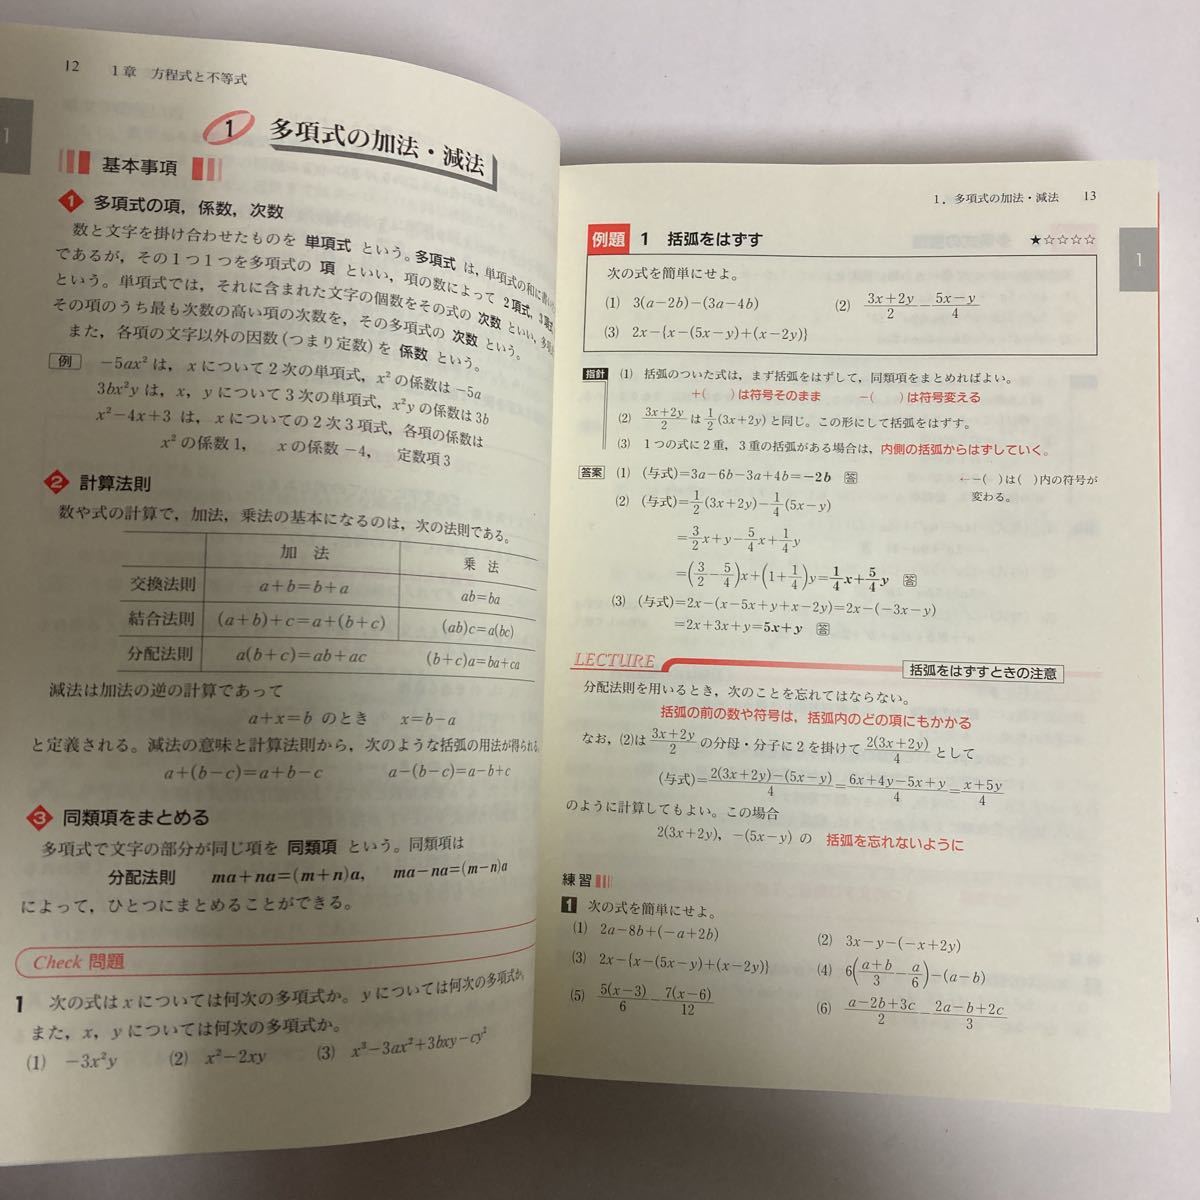 12　1章　方程式と不等式
1
1　多項式の加法・減法
基本事項
1　多項式の項，係数，次数
数と文字を掛け合わせたものを 単項式 という。多項式 は，単項式の和に書い
であるが，その1つ1つを多項式の 項 といい，項の数によって 2項式，3項式
という。単項式では，それに含まれた文字の個数をその式の 次数 といい，多項
その項のうち最も次数の高い項の次数を，その多項式の 次数 という。
また，各項の文字以外の因数(つまり定数)を 係数 という。
例　−5ax²は，xについて2次の単項式，x²の係数は−5a
3bx²yは，x，yについて3次の単項式，x²yの係数は3b
x²−4x+3は，xについての2次3項式，各項の係数は
x²の係数1，　xの係数−4，　定数項3
2　計算法則
数や式の計算で，加法，乗法の基本になるのは，次の法則である。
加　法　乗　法
交換法則　a+b=b+a　ab=ba
結合法則　(a+b)+c=a+(b+c)　(ab)c=a(bc)
分配法則　a(b+c)=ab+ac　(b+c)a=ba+ca
減法は加法の逆の計算であって
a+x=b のとき　x=b−a
と定義される。減法の意味と計算法則から，次のような括弧の用法が得られる。
a+(b−c)=a+b−c　a−(b−c)=a−b+c
3　同類項をまとめる
多項式で文字の部分が同じ項を 同類項 という。同類項は
分配法則　ma+na=(m+n)a,　ma−na=(m−n)a
によって，ひとつにまとめることができる。
Check 問題
1　次の式はxについては何次の多項式か。yについては何次の多項式か。
また，x，yについては何次の多項式か。
(1)　−3x²y　(2)　x²−2xy　(3)　x³−3ax²+3bxy−cy²
1．多項式の加法・減法　13
1
例題　1　括弧をはずす　★☆☆☆☆
次の式を簡単にせよ。
(1)　3(a−2b)−(3a−4b)　(2)　(3x+2y)/2−(5x−y)/4
(3)　2x−{x−(5x−y)+(x−2y)}
指針　(1)　括弧のついた式は，まず括弧をはずして，同類項をまとめればよい。
+(　)は符号そのまま　−(　)は符号変える
(2)　(3x+2y)/2 は 1/2(3x+2y) と同じ。この形にして括弧をはずす。
(3)　1つの式に2重，3重の括弧がある場合は，内側の括弧からはずしていく。
答案　(1)　(与式)=3a−6b−3a+4b=−2b　答　←−(　)は(　)内の符号が
変わる。
(2)　(与式)=1/2(3x+2y)−1/4(5x−y)
=3/2x+y−5/4x+1/4y
=(3/2−5/4)x+(1+1/4)y=1/4x+5/4y　答
(3)　(与式)=2x−(x−5x+y+x−2y)=2x−(−3x−y)
=2x+3x+y=5x+y　答
LECTURE　括弧をはずすときの注意
分配法則を用いるとき，次のことを忘れてはならない。
括弧の前の数や符号は，括弧内のどの項にもかかる
なお，(2)は (3x+2y)/2 の分母・分子に2を掛けて 2(3x+2y)/4 として
(与式)=(2(3x+2y)−(5x−y))/4=(6x+4y−5x+y)/4=(x+5y)/4
のように計算してもよい。この場合
2(3x+2y)，−(5x−y) の　括弧を忘れないように
練習
1　次の式を簡単にせよ。
(1)　2a−8b+(−a+2b)　(2)　3x−y−(−x+2y)
(3)　2x−{x−(5x−y)+(x−2y)}　(4)　6((a+b)/3−a/6)−(a−b)
(5)　5(x−3)/6−7(x−6)/12　(6)　(a−2b+3c)/2−(2a−b+2c)/3